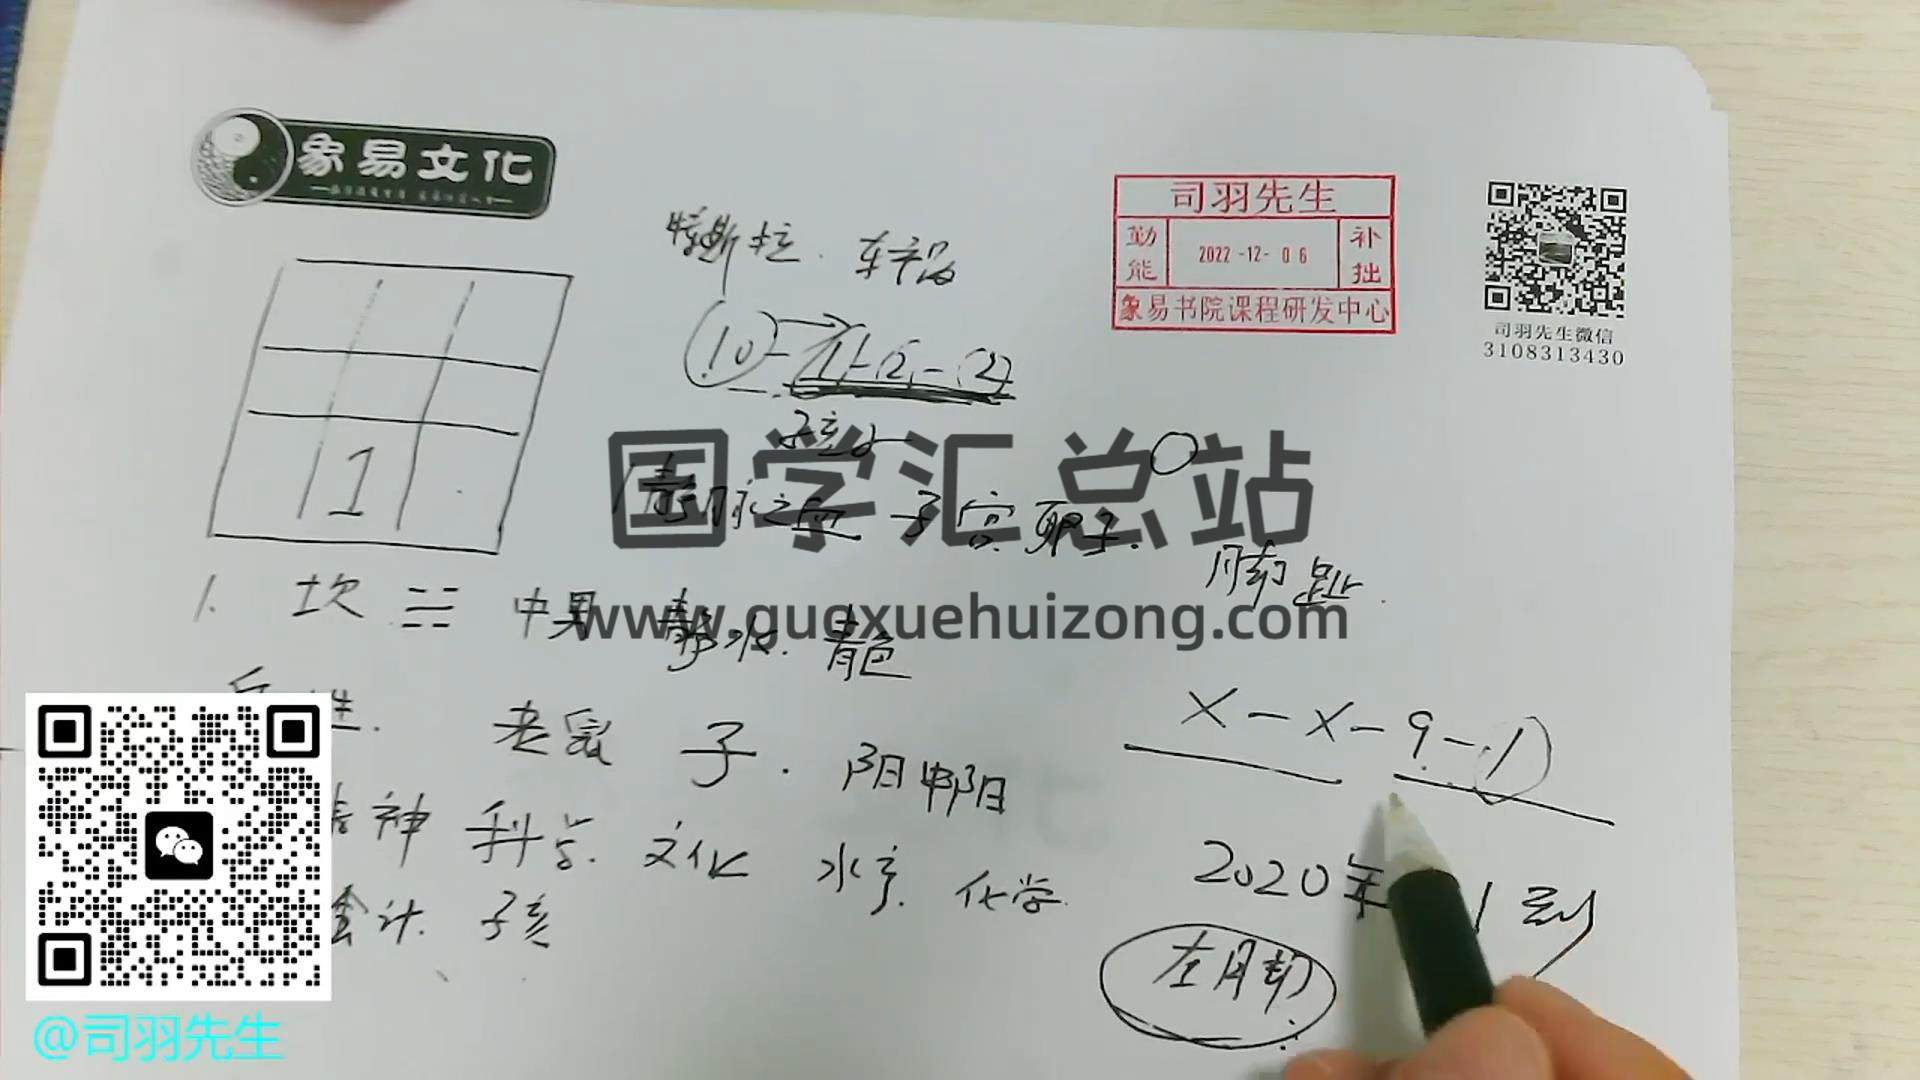 象易文化
司羽先生
勤能
2022-12-06
补拙
象易书院课程研发中心
司羽先生微信
3108313430
特斯拉.
1
子宫
脚趾.
国学汇总站
www.guoxuehuizong.com
1. 坎 ☵ 中男 静水. 青色
性.
老鼠 子.
X-X-9-1
神 科学. 文化 水产. 化学.
2020年 1到
会计. 子亥
左脚
@司羽先生